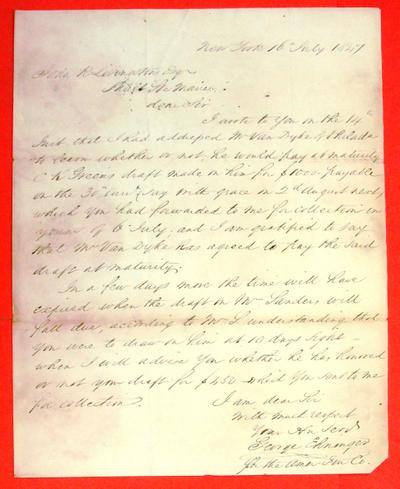 New York 16 July 1847
John R Livingston Esqr
Sault Ste Marie
dear Sir
I wrote to you on the 14th
Inst that I had addressed Mr Van Dyke of Philada
to learn whether or not, he would pay at maturity
draft made on him for $1000 payable
on the 30th (say with grace on 2d August next)
which you had forwarded to me for collection in
yours of 6 July, and I am gratified to say
that Mr Van Dyke has agreed to pay the said
draft at maturity;
In a few days more the time will have
expired when the draft on Mr Sanders will
fall due, according to Mr S. understanding that
you were to draw on him at 10 days sight —
when I will advise you whether he has honored
or not your draft for $450 which you sent to me
for collection.
I am dear Sir
With much respect
Your
George Ehninger
for the Amn Fur Co.